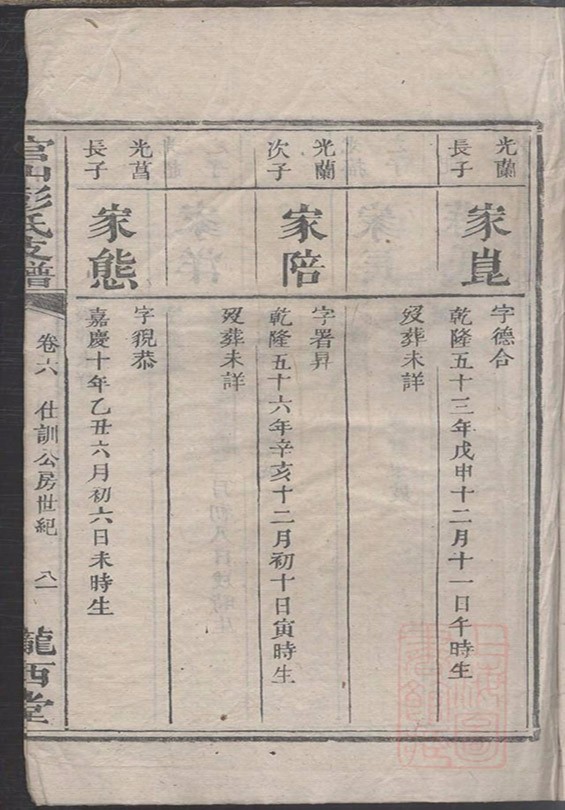 光蘭
長子
家崑
字德合
乾隆五十三年戊申十二月十一日午時生
歿葬未詳
光蘭
次子
家陪
字署昇
乾隆五十六年辛亥十二月初十日寅時生
歿葬未詳
光莒
長子
家態
字猊恭
嘉慶十年乙丑六月初六日未時生
官山彭氏支譜
卷六 仕訓公房世紀 八一
隴西堂